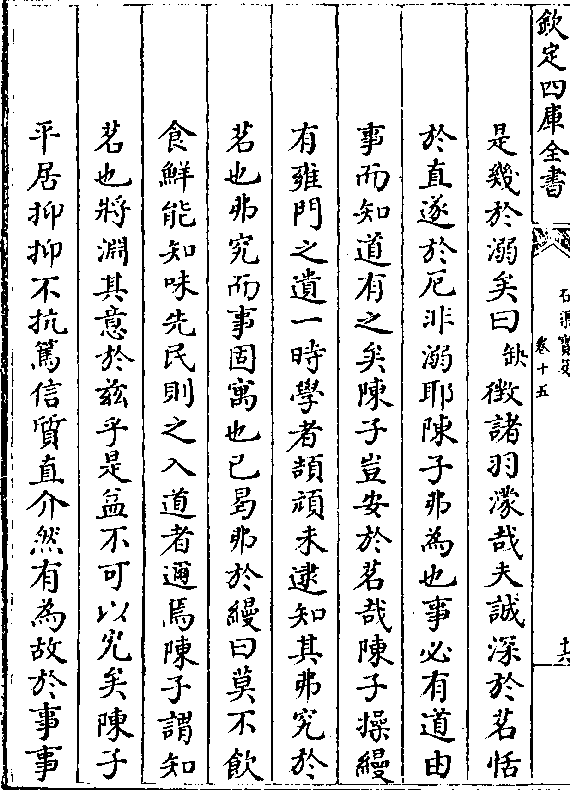 欽定四庫全書
石渠寶笈
卷十五
是幾於溺矣曰缺徴諸羽濛哉夫誠深於茗恬
於直遂於厄非溺耶陳子弗為也事必有道由
事而知道有之矣陳子豈安於茗哉陳子操縵
有雍門之遺一時學者頡頏未逮知其弗究於
茗也弗究而事固寓也已曷弗於縵曰莫不飲
食鮮能知味先民則之入道者邇焉陳子謂知
茗也將淵其意於兹乎是益不可以究矣陳子
平居抑抑不抗篤信質直介然有為故於事事